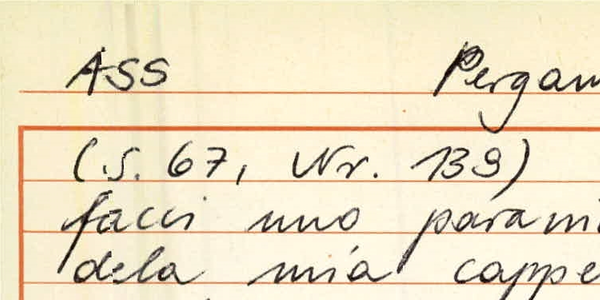 ASS Pergam
(S. 67, Nr. 139)
facci uno parami
dela mia cappe